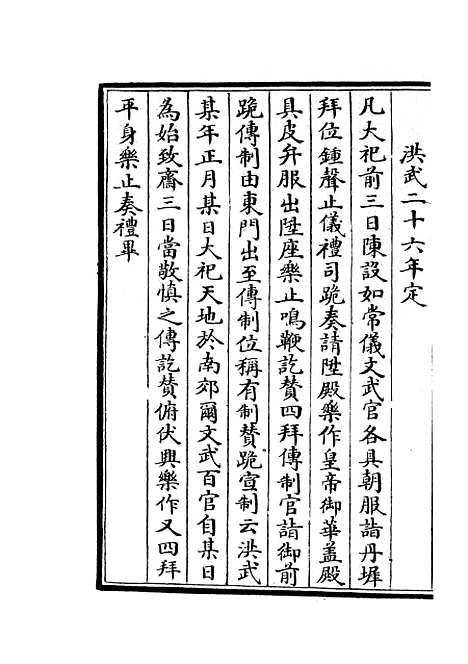 洪武二十六年定
凡大祀前三日陳設如常儀文武官各具朝服詣丹墀
拜位鍾聲止儀禮司跪奏請陞殿樂作皇帝御華葢殿
具皮弁服出陞座樂止鳴鞭訖賛四拜傳制官詣御前
跪傳制由東門出至傳制位稱有制賛跪宣制云洪武
某年正月某日大祀天地於南郊爾文武百官自某日
為始致齋三日當敬慎之傳訖賛俯伏興樂作又四拜
平身樂止奏禮畢